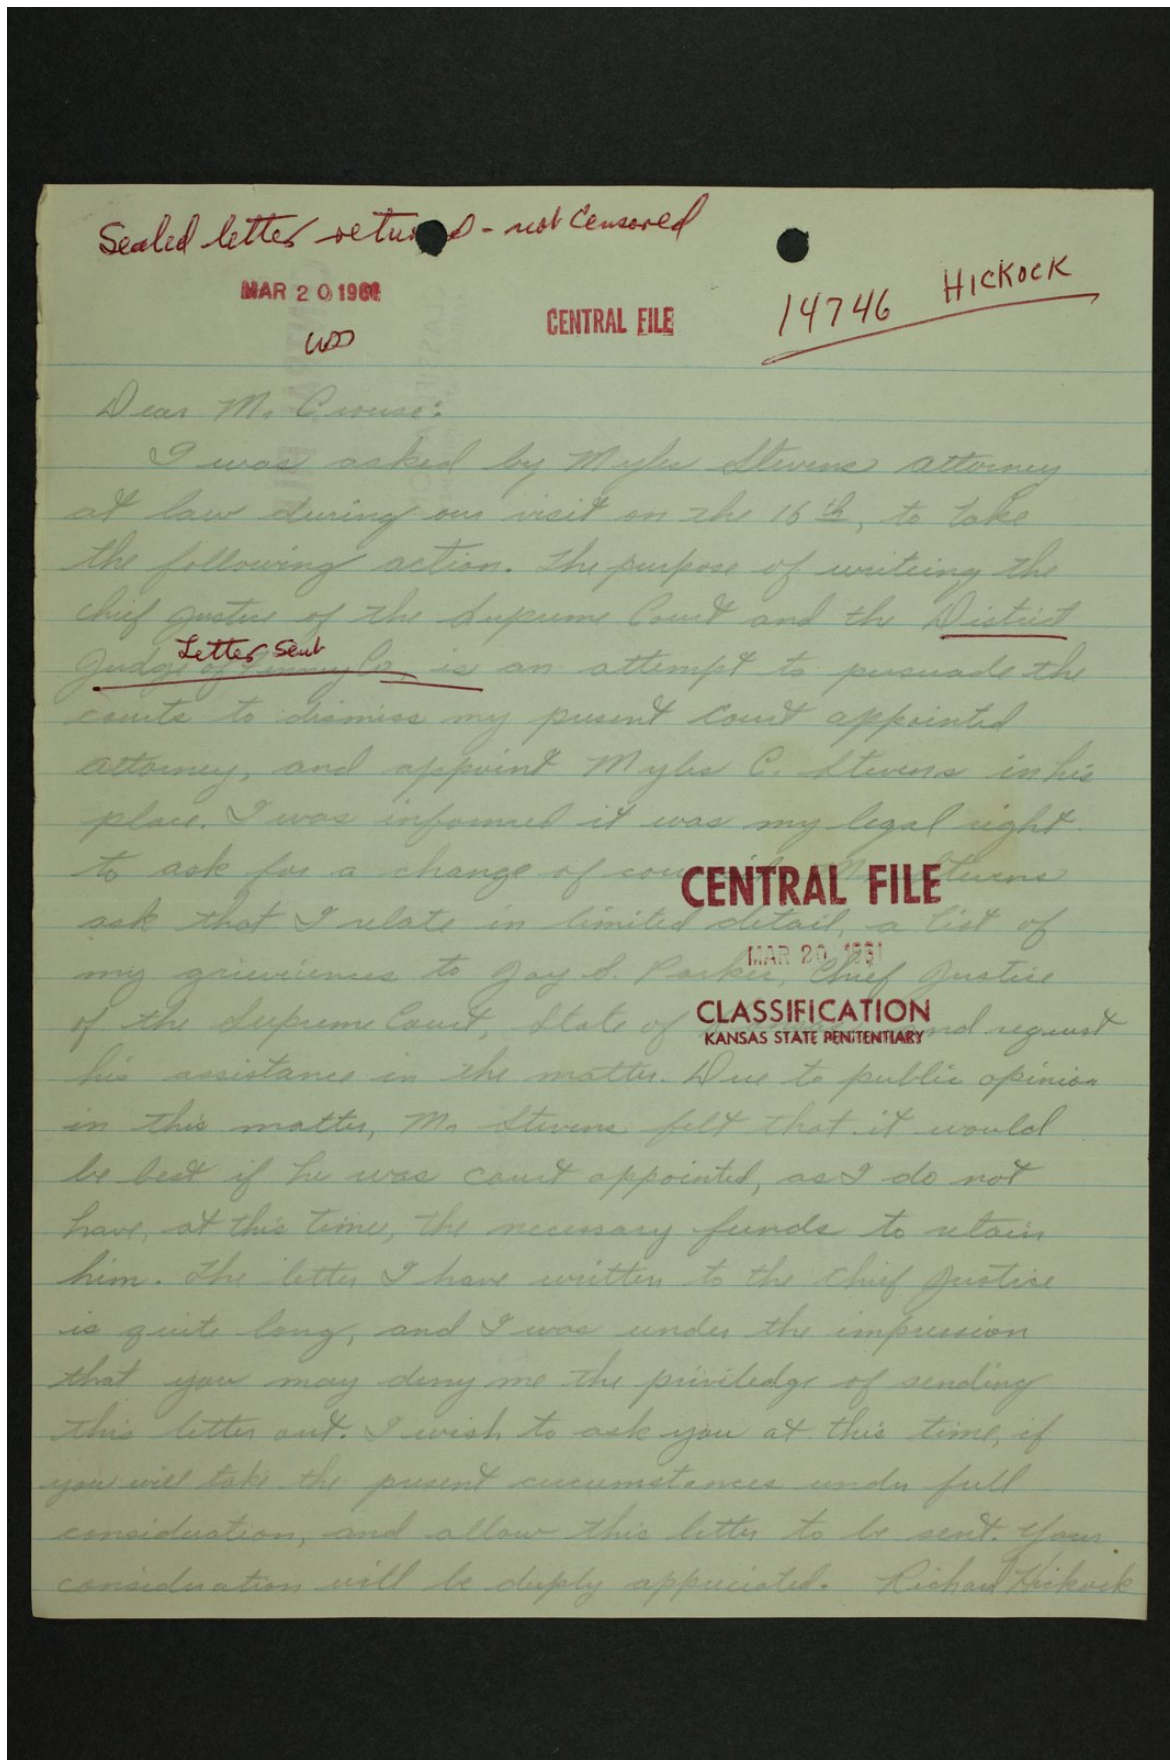 Sealed letter retu d - not Censored
MAR 20 1961
CENTRAL FILE
14746 HICKOCK
Dear Mr. Crouse:
I was asked by Myles Stevens attorney
at law during our visit on the 16th, to take
the following action. The purpose of writeing the
chief justice of the Supreme Court and the District
Letter Sent
Judge of Finney Co. is an attempt to persuade the
courts to dismiss my present court appointed
attorney, and appoint Myles C. Stevens in his
place. I was informed it was my legal right
to ask for a change of Mr. Stevens
ask that I relate in limited detail, a list of
my grieviences to Jay S. Parker, Chief Justice
of the Supreme Court, State of and request
his assistance in the matter. Due to public opinion
in this matter, Mr Stevens felt that it would
be best if he was court appointed, as I do not
have, at this time, the necessary funds to retain
him. The letter I have written to the Chief Justice
is quite long, and I was under the impression
that you may deny me the priviledge of sending
this letter out. I wish to ask you at this time, if
you will take the present circumstances under full
consideration, and allow this letter to be sent. Your
consideration will be deeply appreciated. Richard Hickock
CENTRAL FILE
MAR 20 1961
CLASSIFICATION
KANSAS STATE PENITENTIARY